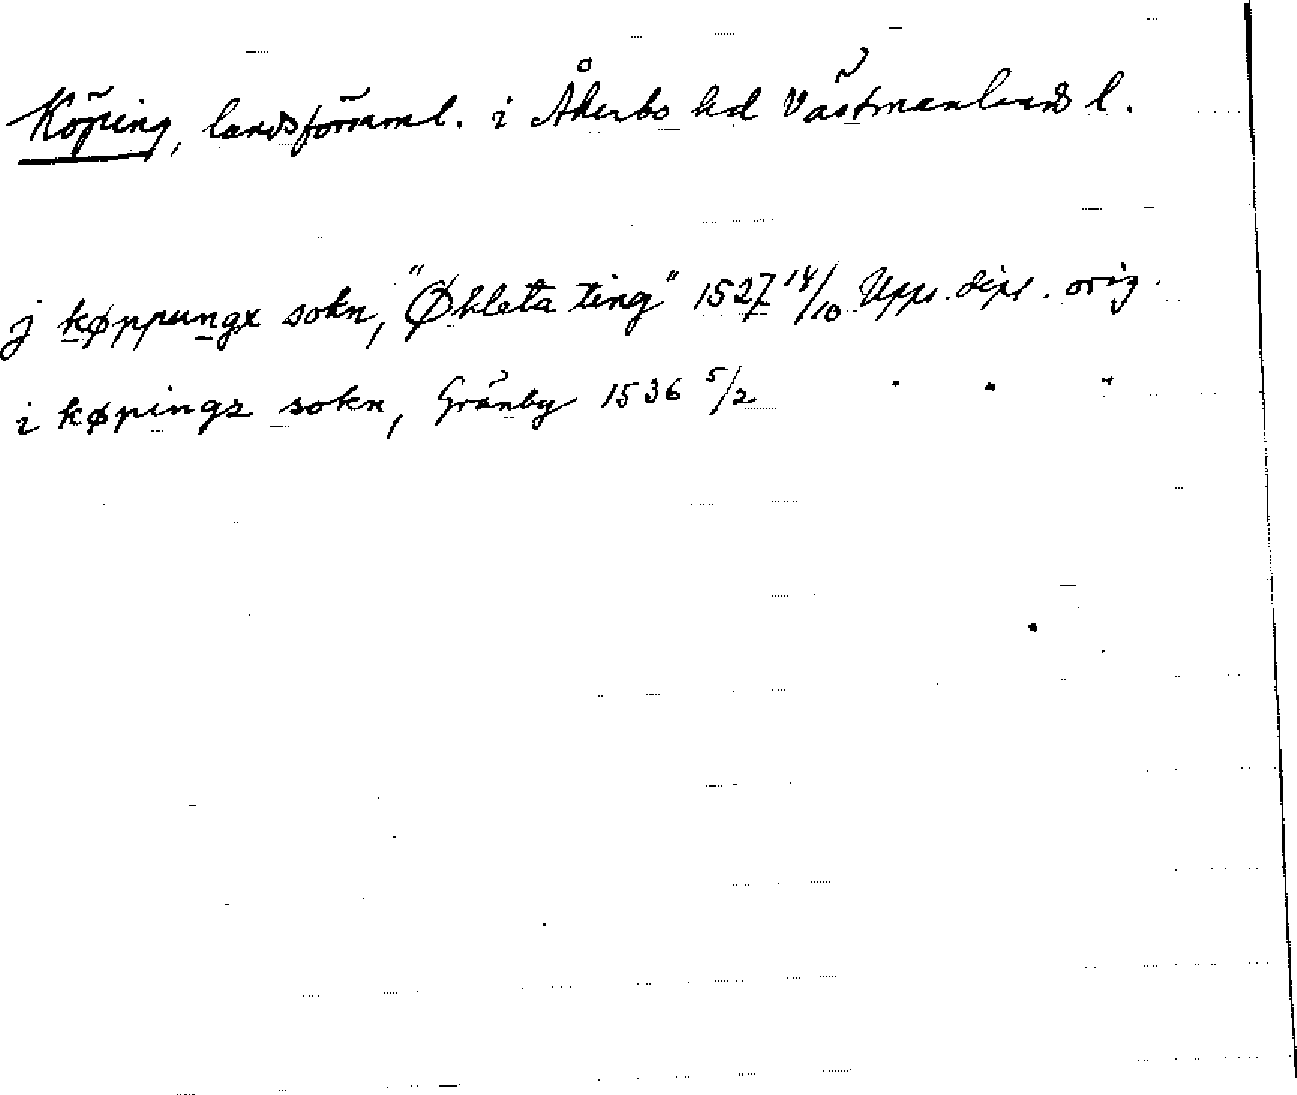 Köping, landsförsaml. i Åkerbo hd Västmanlands l.
j køppunge sokn, "Økleta ting" 1527 14/10 Upps. dipl. orig.
i køpings sokn, Gränby 1536 5/2 " " "